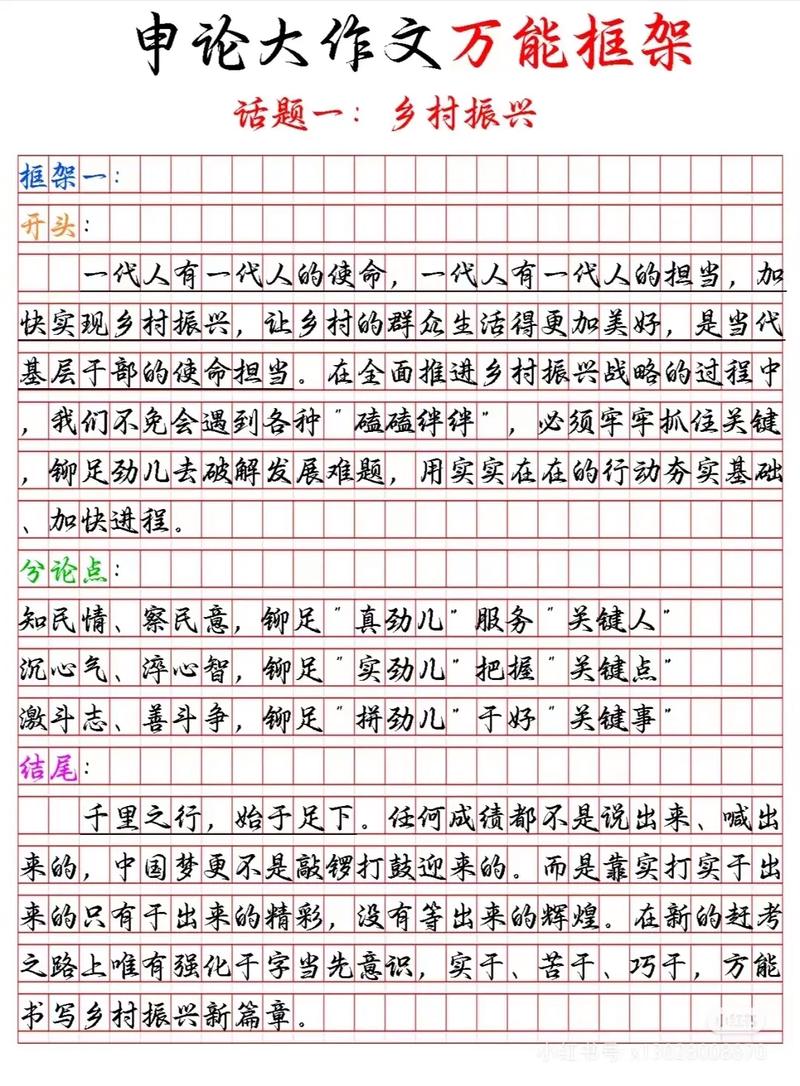 申论大作文万能框架
话题一：乡村振兴
框架一：
开头：
一代人有一代人的使命，一代人有一代人的担当，加
快实现乡村振兴，让乡村的群众生活得更加美好，是当代
基层干部的使命担当。在全面推进乡村振兴战略的过程中
，我们不免会遇到各种“磕磕绊绊”，必须牢牢抓住关键
，铆足劲儿去破解发展难题，用实实在在的行动夯实基础
、加快进程。
分论点：
知民情、察民意，铆足“真劲儿”服务“关键人”
沉心气、淬心智，铆足“实劲儿”把握“关键点”
激斗志、善斗争，铆足“拼劲儿”干好“关键事”
结尾：
千里之行，始于足下。任何成绩都不是说出来、喊出
来的，中国梦更不是敲锣打鼓迎来的。而是靠实打实干出
来的只有干出来的精彩，没有等出来的辉煌。在新的赶考
之路上唯有强化干字当先意识，实干、苦干、巧干，方能
书写乡村振兴新篇章。
小红书